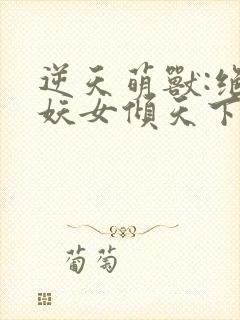 逆天萌獸:絕
妖女傾天下
葡萄